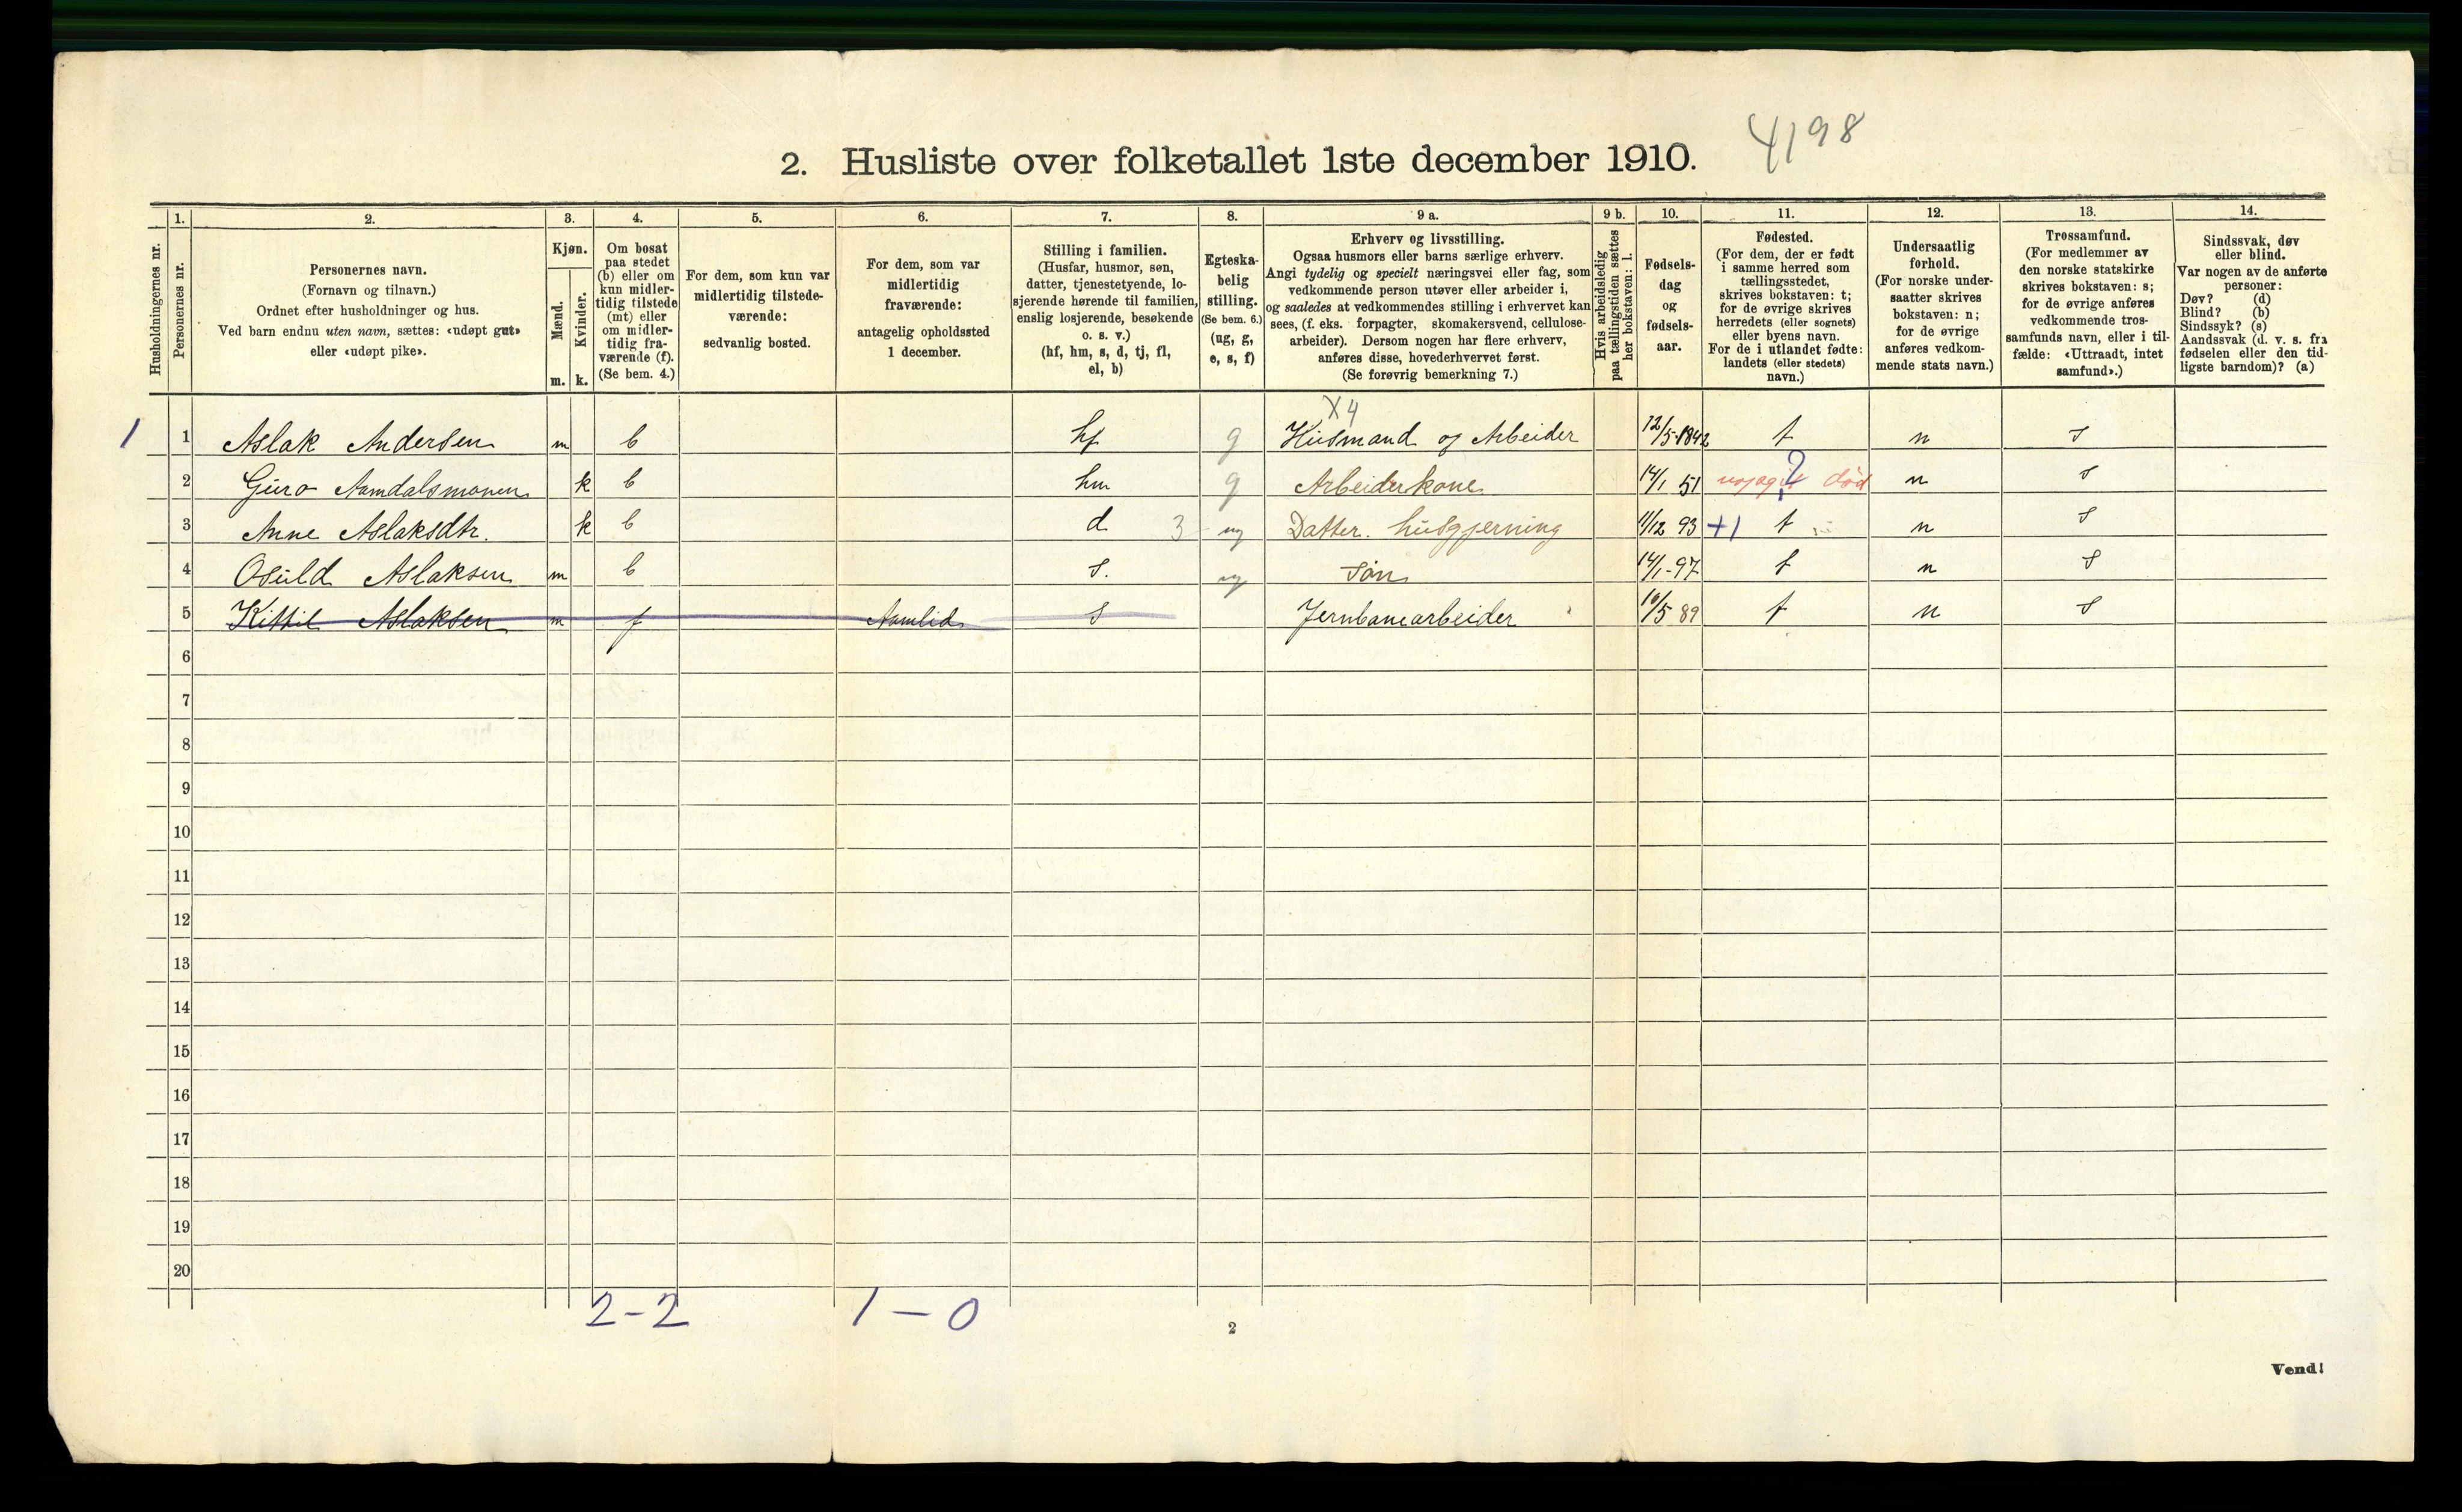 4198
2. Husliste over folketallet 1ste december 1910.
Husholdningernes nr.
1.
Personernes nr.
2.
Personernes navn.
(Fornavn og tilnavn.)
Ordnet efter husholdninger og hus.
Ved barn endnu uten navn, sættes: «udøpt gut»
eller «udøpt pike».
3.
Kjøn.
Mænd.
Kvinder.
m. k.
4.
Om bosat
paa stedet
(b) eller om
kun midler-
tidig tilstede
(mt) eller
om midler-
tidig fra-
værende (f).
(Se bem. 4.)
5.
For dem, som kun var
midlertidig tilstede-
værende:
sedvanlig bosted.
6.
For dem, som var
midlertidig
fraværende:
antagelig opholdssted
1 december.
7.
Stilling i familien.
(Husfar, husmor, søn,
datter, tjenestetyende, lo-
sjerende hørende til familien,
enslig losjerende, besøkende
o. s. v.)
(hf, hm, s, d, tj, fl,
el, b)
8.
Egteska-
belig
stilling.
(Se bem. 6.)
(ug, g,
e, s, f)
9 a.
Erhverv og livsstilling.
Ogsaa husmors eller barns særlige erhverv.
Angi tydelig og specielt næringsvei eller fag, som
vedkommende person utøver eller arbeider i,
og saaledes at vedkommendes stilling i erhvervet kan
sees, (f. eks. forpagter, skomakersvend, cellulose-
arbeider). Dersom nogen har flere erhverv,
anføres disse, hovederhvervet først.
(Se forøvrig bemerkning 7.)
9 b.
Hvis arbeidsledig
paa tællingstiden sættes
her bokstaven: l.
10.
Fødsels-
dag
og
fødsels-
aar.
11.
Fødested.
(For dem, der er født
i samme herred som
tællingsstedet,
skrives bokstaven: t;
for de øvrige skrives
herredets (eller sognets)
eller byens navn.
For de i utlandet fødte:
landets (eller stedets)
navn.)
12.
Undersaatlig
forhold.
(For norske under-
saatter skrives
bokstaven: n;
for de øvrige
anføres vedkom-
mende stats navn.)
13.
Trossamfund.
(For medlemmer av
den norske statskirke
skrives bokstaven: s;
for de øvrige anføres
vedkommende tros-
samfunds navn, eller i til-
fælde: «Uttraadt, intet
samfund».)
14.
Sindssvak, døv
eller blind.
Var nogen av de anførte
personer:
Døv? (d)
Blind? (b)
Sindssyk? (s)
Aandssvak (d. v. s. fra
fødselen eller den tid-
ligste barndom)? (a)
X4
1 1 Aslak Andersen m b hf g Husmand og Arbeider 12/5-1842 t n s
2 Guro Aamdalsmonen k b hm g Arbeiderkone 14/1 51 ? død n s
3 Anne Aslaksdtr. k b d 3 ug Datter. husgjerning 11/12 93 +1 t n s
4 Osuld Aslaksen m b s. ug Søn 14/1-97 t n s
5 Kittil Aslaksen m f Aamlid s Jernbanearbeider 10/5 89 t n s
6
7
8
9
10
11
12
13
14
15
16
17
18
19
20
2-2 1-0
2
Vend!